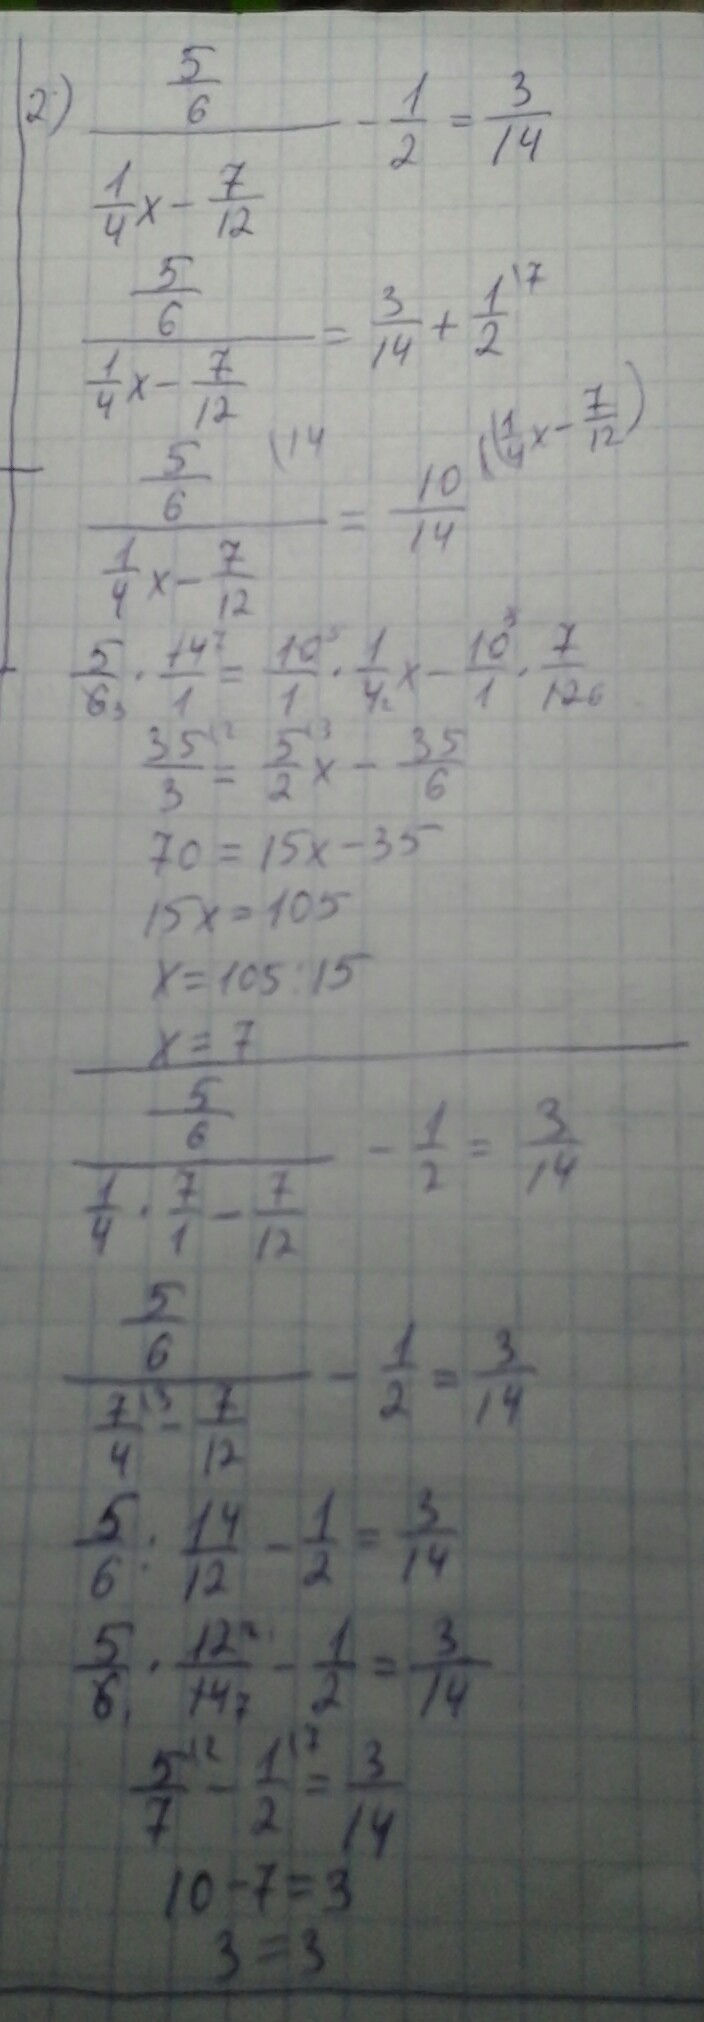 2) 5/6 / (1/4 x - 7/12) - 1/2 = 3/14
5/6 / (1/4 x - 7/12) = 3/14 + 1/2 \7
5/6 / (1/4 x - 7/12) (14 = 10/14 ((1/4 x - 7/12)
5/6 3 · 14 7/1 = 10 5/1 · 1/4 2 x - 10 5/1 · 7/12 6
35/3 \2 = 5/2 \3 x - 35/6
70 = 15x - 35
15x = 105
x = 105 : 15
x = 7
5/6 / (1/4 · 7/1 - 7/12) - 1/2 = 3/14
5/6 / (7/4 \3 - 7/12) - 1/2 = 3/14
5/6 : 14/12 - 1/2 = 3/14
5/6 1 · 12 2/14 7 - 1/2 = 3/14
5/7 \2 - 1/2 \7 = 3/14
10 - 7 = 3
3 = 3